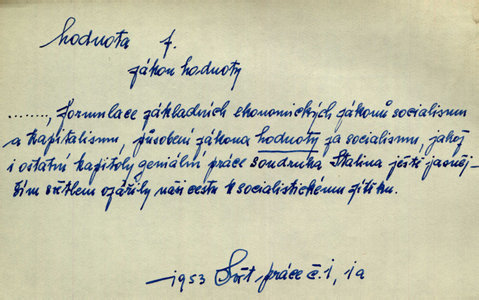 hodnota f.
zákon hodnoty
........, formulace základních ekonomických zákonů socialismu
a kapitalismu, působení zákona hodnoty za socialismu, jakož
i ostatní kapitoly geniální práce soudruha Stalina ještě jasněj-
ším světlem ozářily naši cestu k socialistickému zítřku.
—1953 Svět práce č. 1, 1a